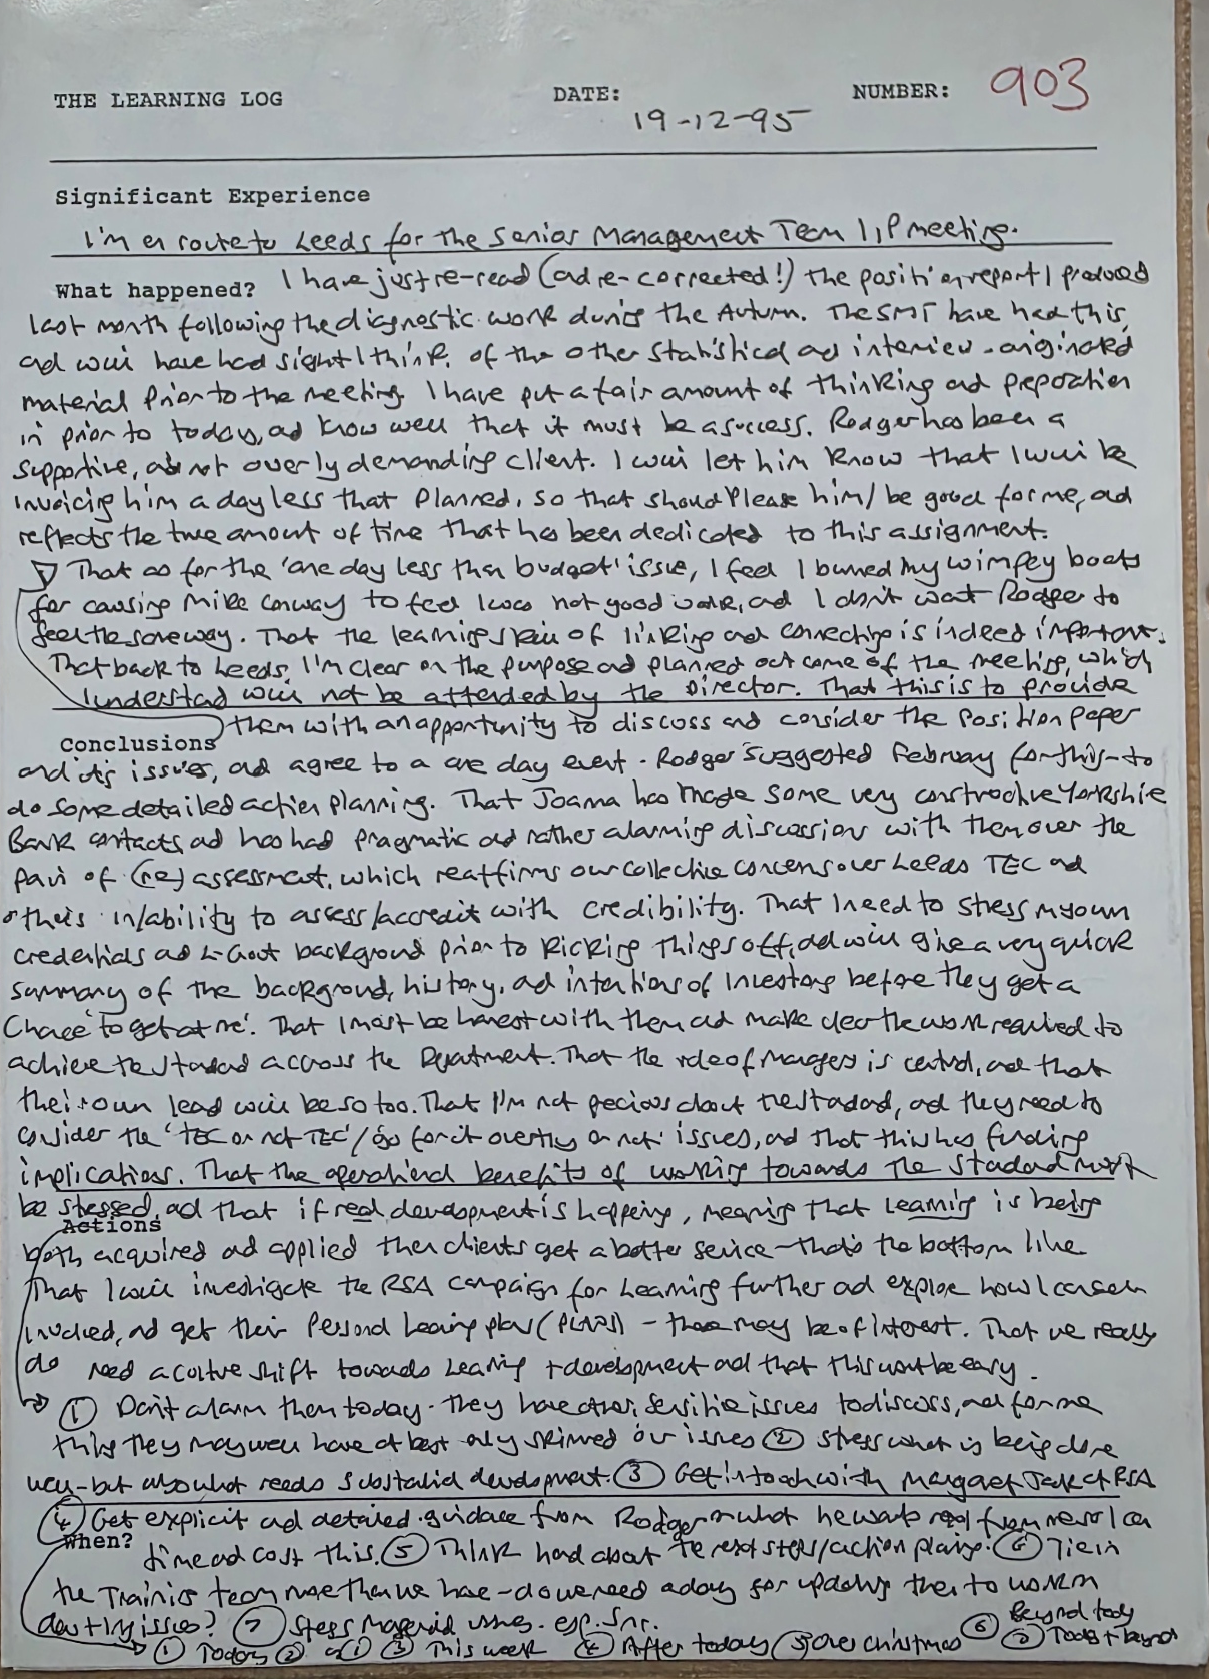 THE LEARNING LOG DATE: 19-12-95 NUMBER: 903
Significant Experience
I'm en route to Leeds for the Senior Management Team IIP meeting.
What happened? I have just re-read (and re-corrected!) the position report I produced
last month following the diagnostic work during the Autumn. The SMT have had this,
and will have had sight I think, of the other statistical and interview-originated
material prior to the meeting. I have put a fair amount of thinking and preparation
in prior to today, and know well that it must be a success. Rodger has been a
supportive, and not overly demanding client. I will let him know that I will be
invoicing him a day less that planned, so that should please him/be good for me, and
reflects the true amount of time that has been dedicated to this assignment.
That as for the 'one day less than budget' issue, I feel I burned my wimpey boats
for causing Mike Conway to feel I was not good value, and I don't want Rodger to
feel the same way. That the learning skill of linking and connecting is indeed important.
That back to Leeds, I'm clear on the purpose and planned outcome of the meeting, which
I understand will not be attended by the Director. That this is to provide
them with an opportunity to discuss and consider the position paper
Conclusions
and its issues, and agree to a one day event - Rodger suggested February for this - to
do some detailed action planning. That Joanna has made some very constructive Yorkshire
Bank contacts and has had pragmatic and rather alarming discussions with them over the
pain of (re) assessment, which reaffirms our collective concerns over Leeds TEC and
others in/ability to assess/accredit with credibility. That I need to stress my own
credentials and L-Govt background prior to kicking things off, and will give a very quick
summary of the background, history, and intentions of Investors before they get a
chance 'to get at me'. That I must be honest with them and make clear the work required to
achieve the standard across the Department. That the role of managers is central, and that
their own lead will be so too. That I'm not precious about the standard, and they need to
consider the 'TEC or not TEC'/'go for it overtly or not' issues, and that this has funding
implications. That the operational benefits of working towards the standard must
be stressed, and that if real development is happening, meaning that learning is being
Actions
both acquired and applied then clients get a better service - that's the bottom line.
That I will investigate the RSA Campaign for Learning further and explore how I can get
involved, and get their Personal Learning plans - these may be of interest. That we really
do need a culture shift towards learning + development and that this won't be easy.
① Don't alarm them today. They have other, sensitive issues to discuss, and for me
they may well have at best only skimmed our issues ② Stress what is being done
well - but also what needs substantial development. ③ Get in touch with Margaret at RSA
④ Get explicit and detailed guidance from Rodger on what he wants next from me so I can
When?
time and cost this. ⑤ Think hard about the next steps/action planning. ⑥ Tie in
the Training team more than we have - do we need a day for updating them to work on
identifying issues? ⑦ Stress Managerial issues. esp. Snr.
① Today ② as ① ③ This week ④ After today ⑤ Over Christmas ⑥ Beyond today ⑦ Today + beyond